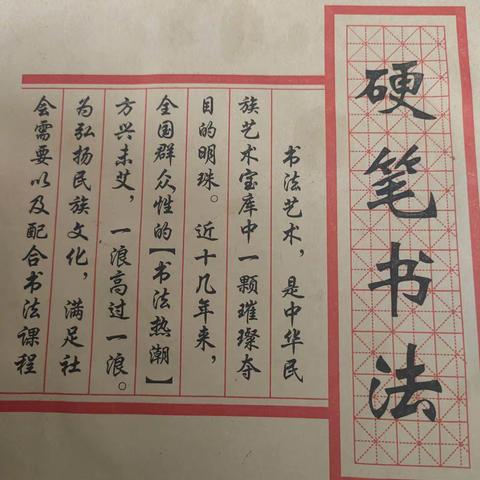 硬笔书法
书法艺术，是中华民
族艺术宝库中一颗璀璨夺
目的明珠。近十几年来，
全国群众性的【书法热潮】
方兴未艾，一浪高过一浪。
为弘扬民族文化，满足社
会需要以及配合书法课程